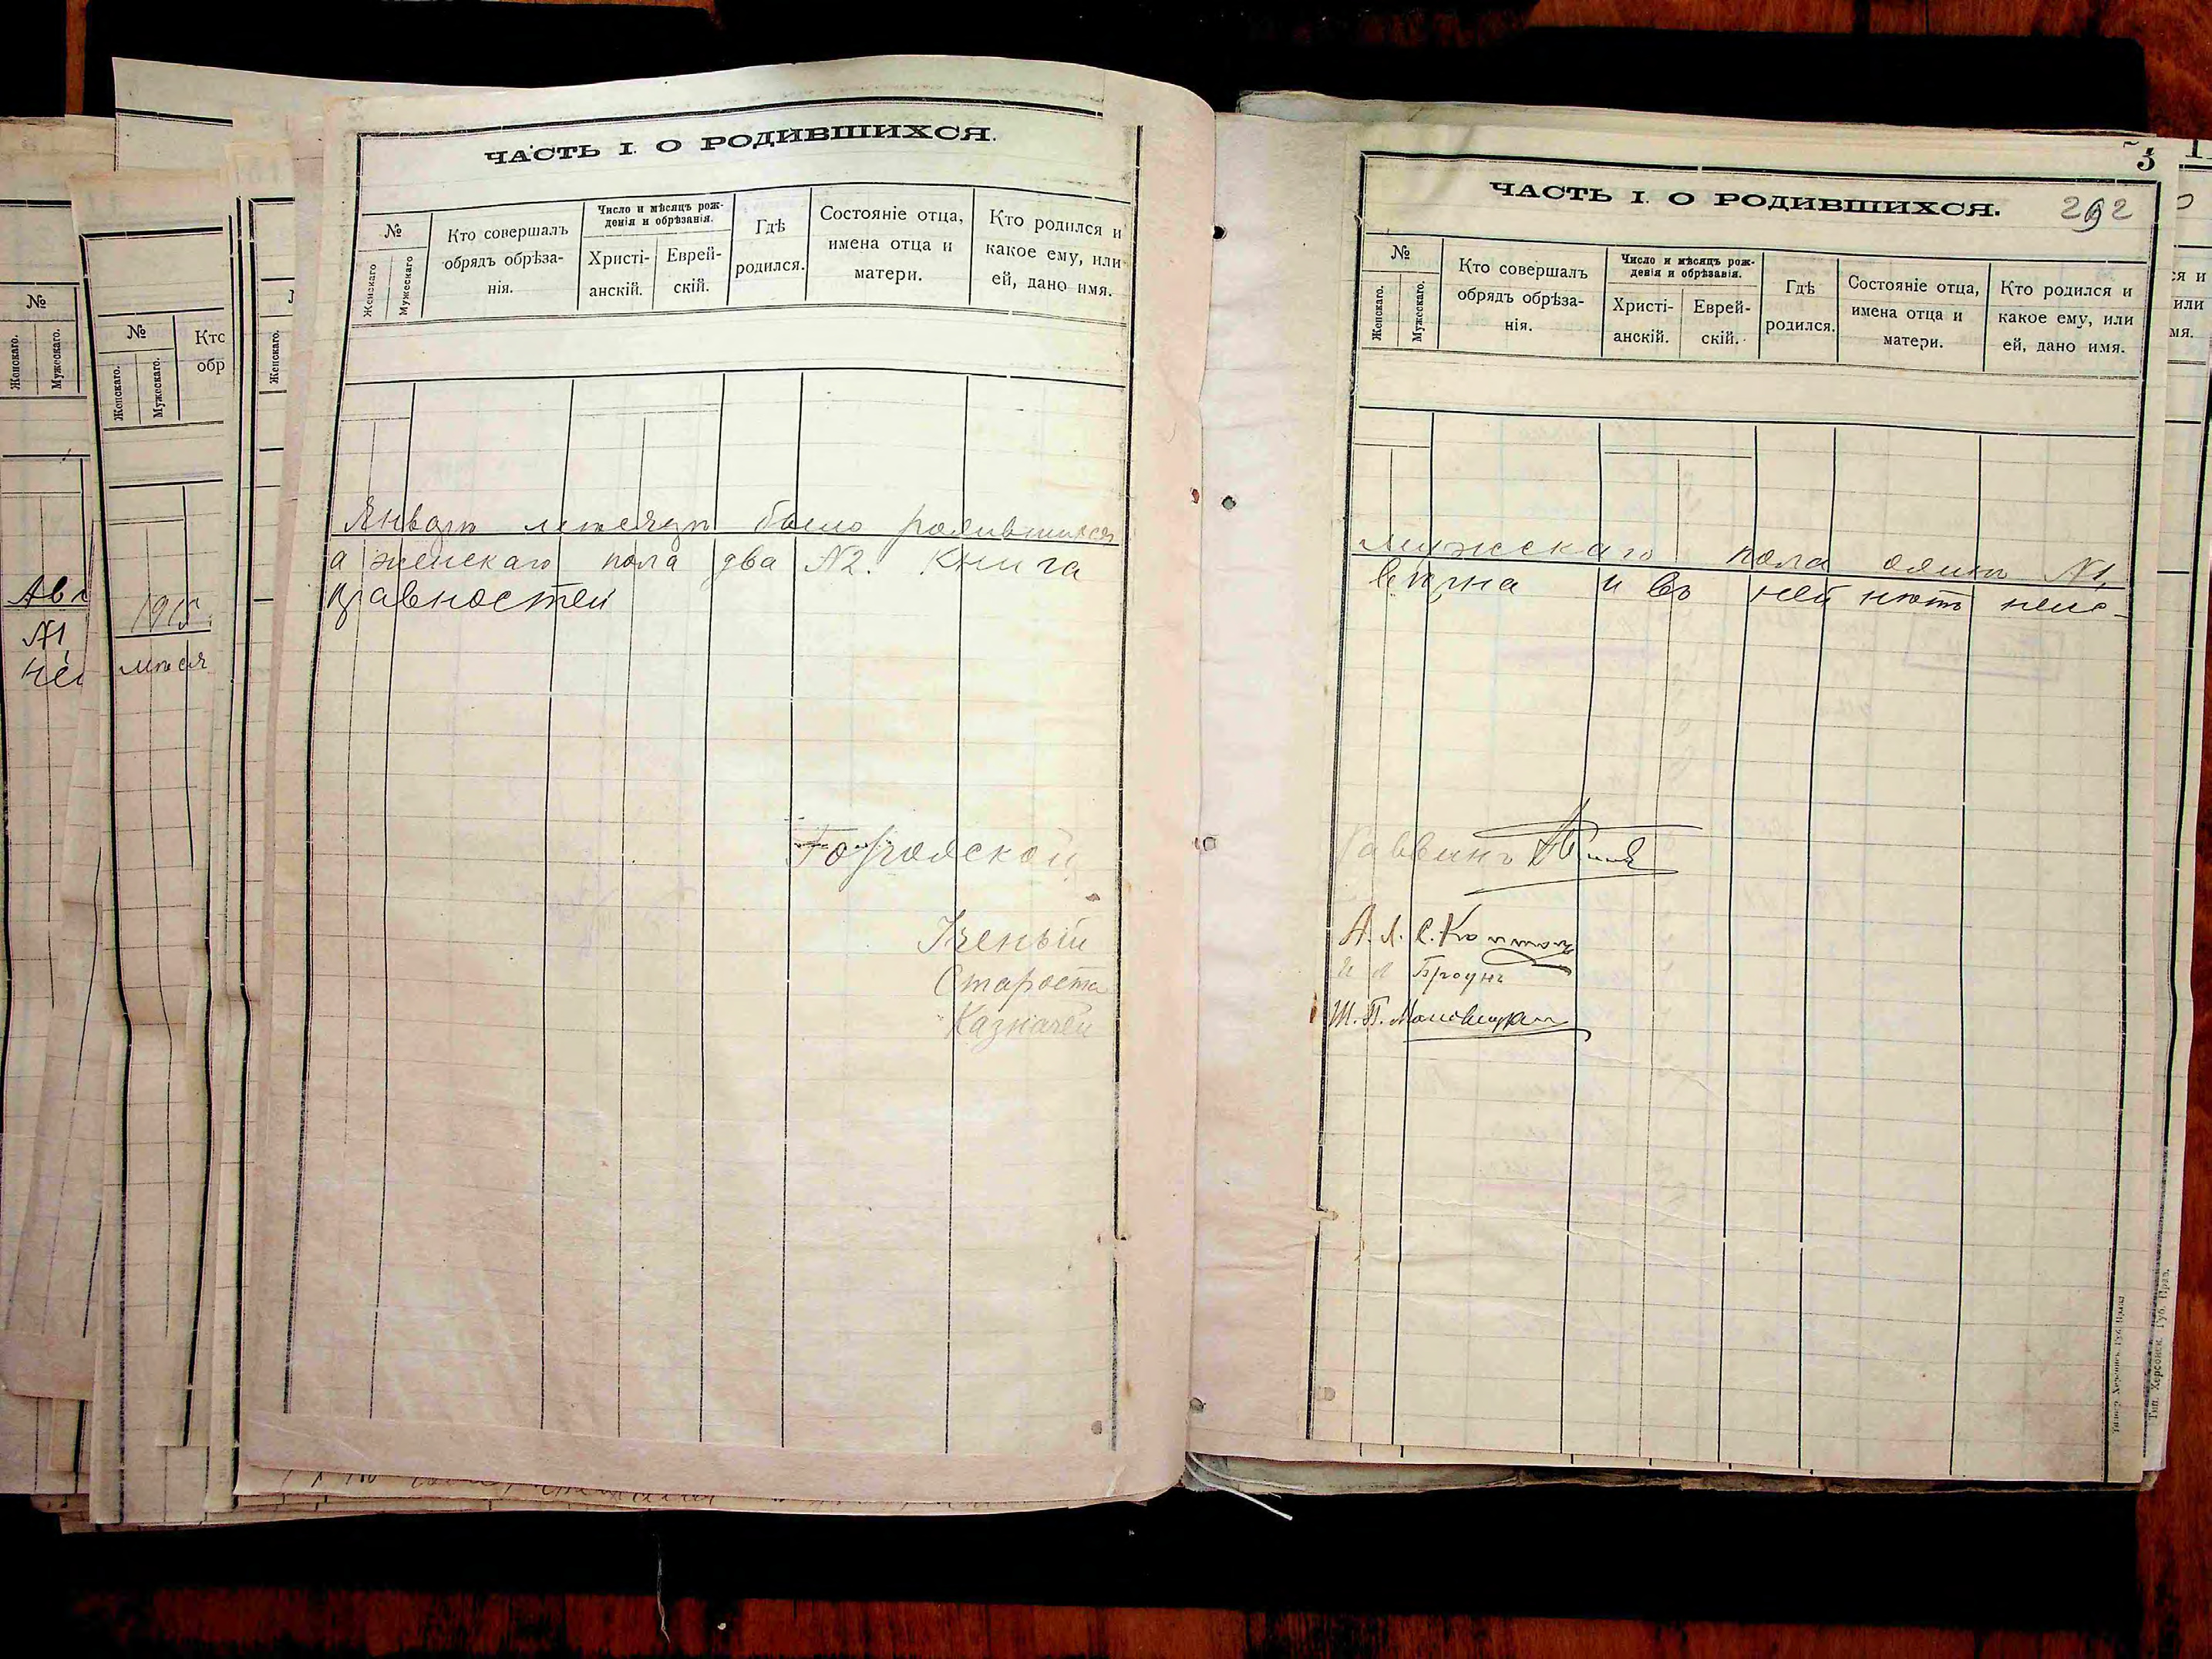 ЧАСТЬ I. О РОДИВШИХСЯ.
№
Женскаго
Мужескаго
Кто совершалъ
обрядъ обрѣза-
нія.
Число и мѣсяцъ рож-
денія и обрѣзанія.
Христі-
анскій.
Еврей-
скій.
Гдѣ
родился.
Состояніе отца,
имена отца и
матери.
Кто родился и
какое ему, или
ей, дано имя.
Январь мѣсяцъ было родившихся
а женскаго пола два №2. Книга
правностей
Городской
Ученый
Староста
Казначей
3
ЧАСТЬ I. О РОДИВШИХСЯ.
292
№
Женскаго.
Мужескаго.
Кто совершалъ
обрядъ обрѣза-
нія.
Число и мѣсяцъ рож-
денія и обрѣзанія.
Христі-
анскій.
Еврей-
скій.
Гдѣ
родился.
Состояніе отца,
имена отца и
матери.
Кто родился и
какое ему, или
ей, дано имя.
мужескаго пола одинъ №1,
вѣрна и въ ней нѣтъ неис-
Раввинъ
А. Л. С.
Броунъ
Ш. П.
Тип. Херсонск. Губ. Прав.
№
Женскаго.
Мужескаго.
№1
№
Женскаго.
Мужескаго.
Кто
обр
1915
мѣся
Женскаго.